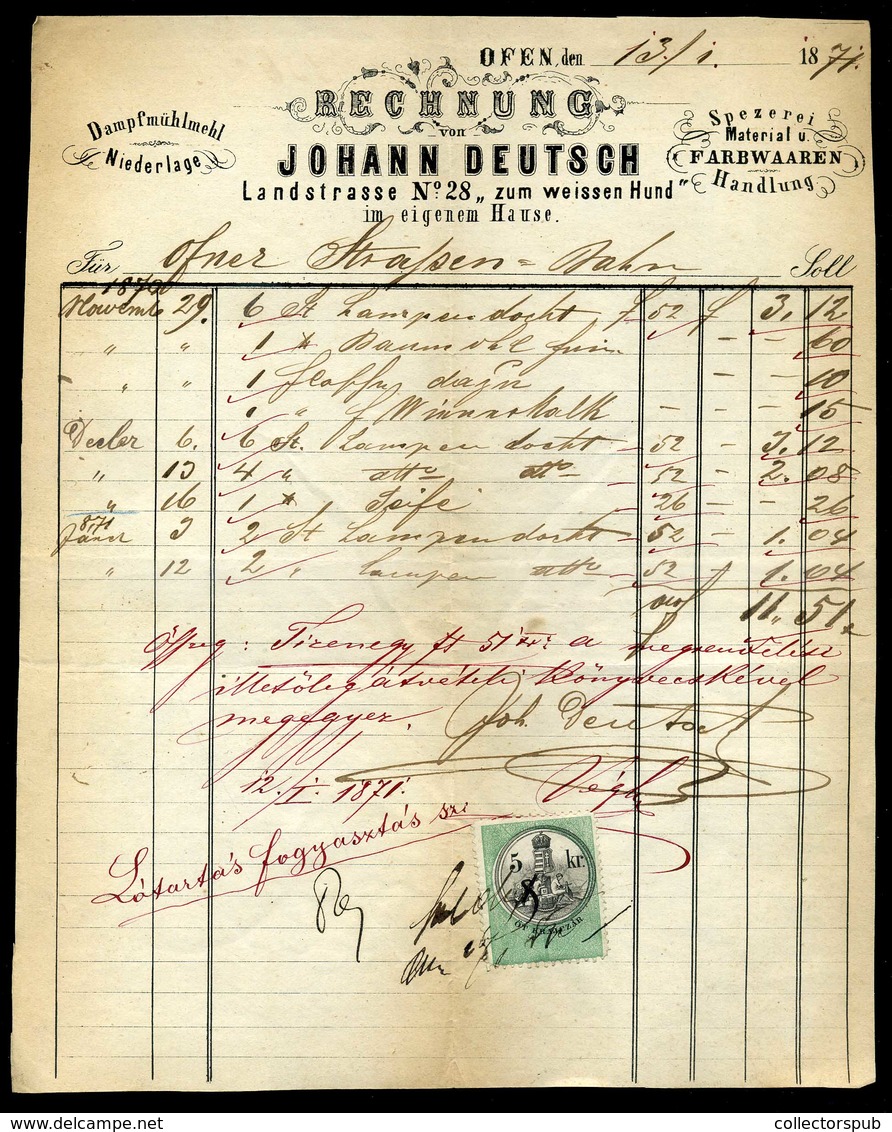 OFEN, den 13./1. 1871.
RECHNUNG
von
JOHANN DEUTSCH
Landstrasse No. 28 „zum weissen Hund"
im eigenem Hause.
Dampfmühlmehl
Niederlage
Spezerei
Material u.
FARBWAAREN
Handlung
Für Ofner Straßen=Bahn Soll
1870
Novemb 29. 6 St Lampendocht f 52 f 3. 12
" " 1 Baumöl fein - - 60
" " 1 dazu - - 10
" - - - 15
Decber 6. 6 St. Lampendocht - 52 - 3. 12
" 13 4 " dtto dtto - 52 - 2. 08
" 16 1 Seife - 26 - - 26
1871
Jäner 3 2 St Lampendocht - 52 - 1. 04
" 12 2 " Lampen dtto - 52 - 1. 04
11 " 51
Összeg: Tizenegy ft 51 kr: a megrendelési
illetőleg átvételi könyvecskével
megegyez.
Joh. Deutsch
12./I. 1871. Végh
Lótartás fogyasztás sz:
5 kr.
ÖT KRAJCZÁR
collectorspub